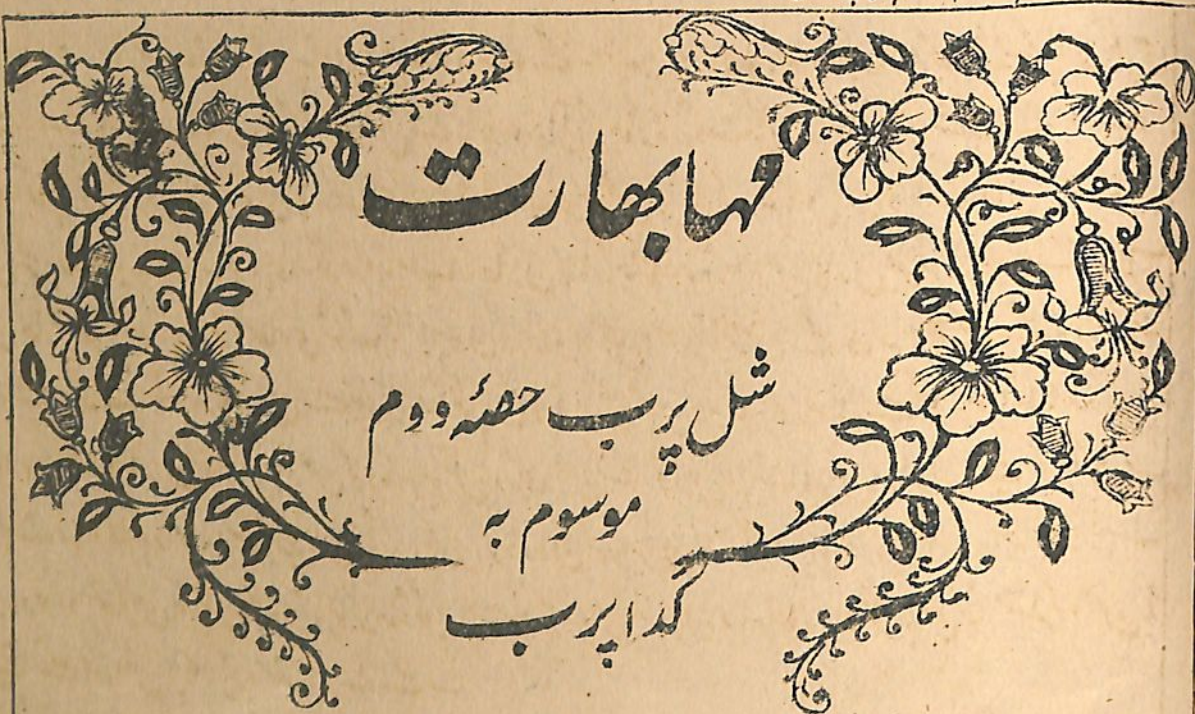 مہا بھارت
شل پرب حصۂ دوم
موسوم بہ
گدا پرب